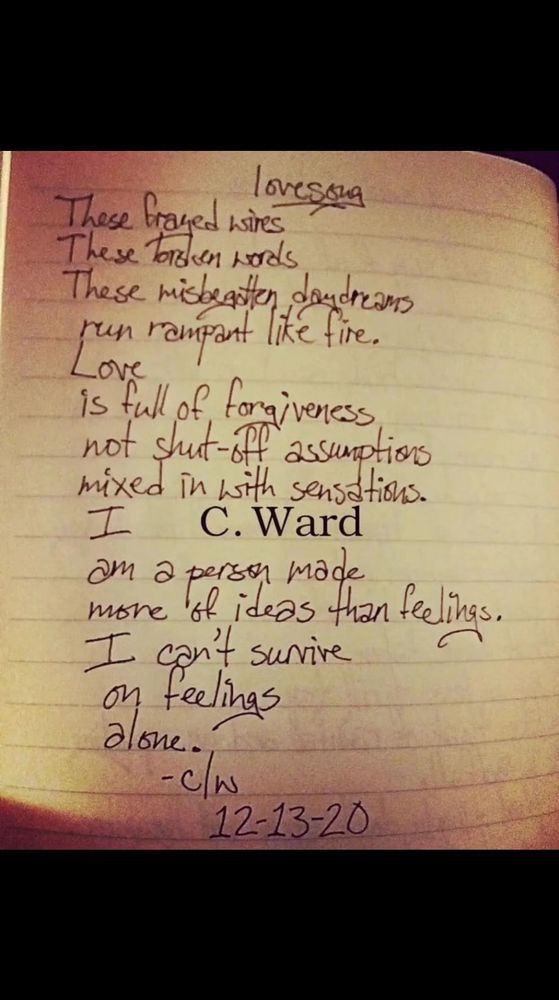 lovesong
These frayed wires
These broken words
These misbegotten daydreams
run rampant like fire.
Love
is full of forgiveness
not shut-off assumptions
mixed in with sensations.
I C. Ward
am a person made
more of ideas than feelings.
I can't survive
on feelings
alone.
-c/w
12-13-20